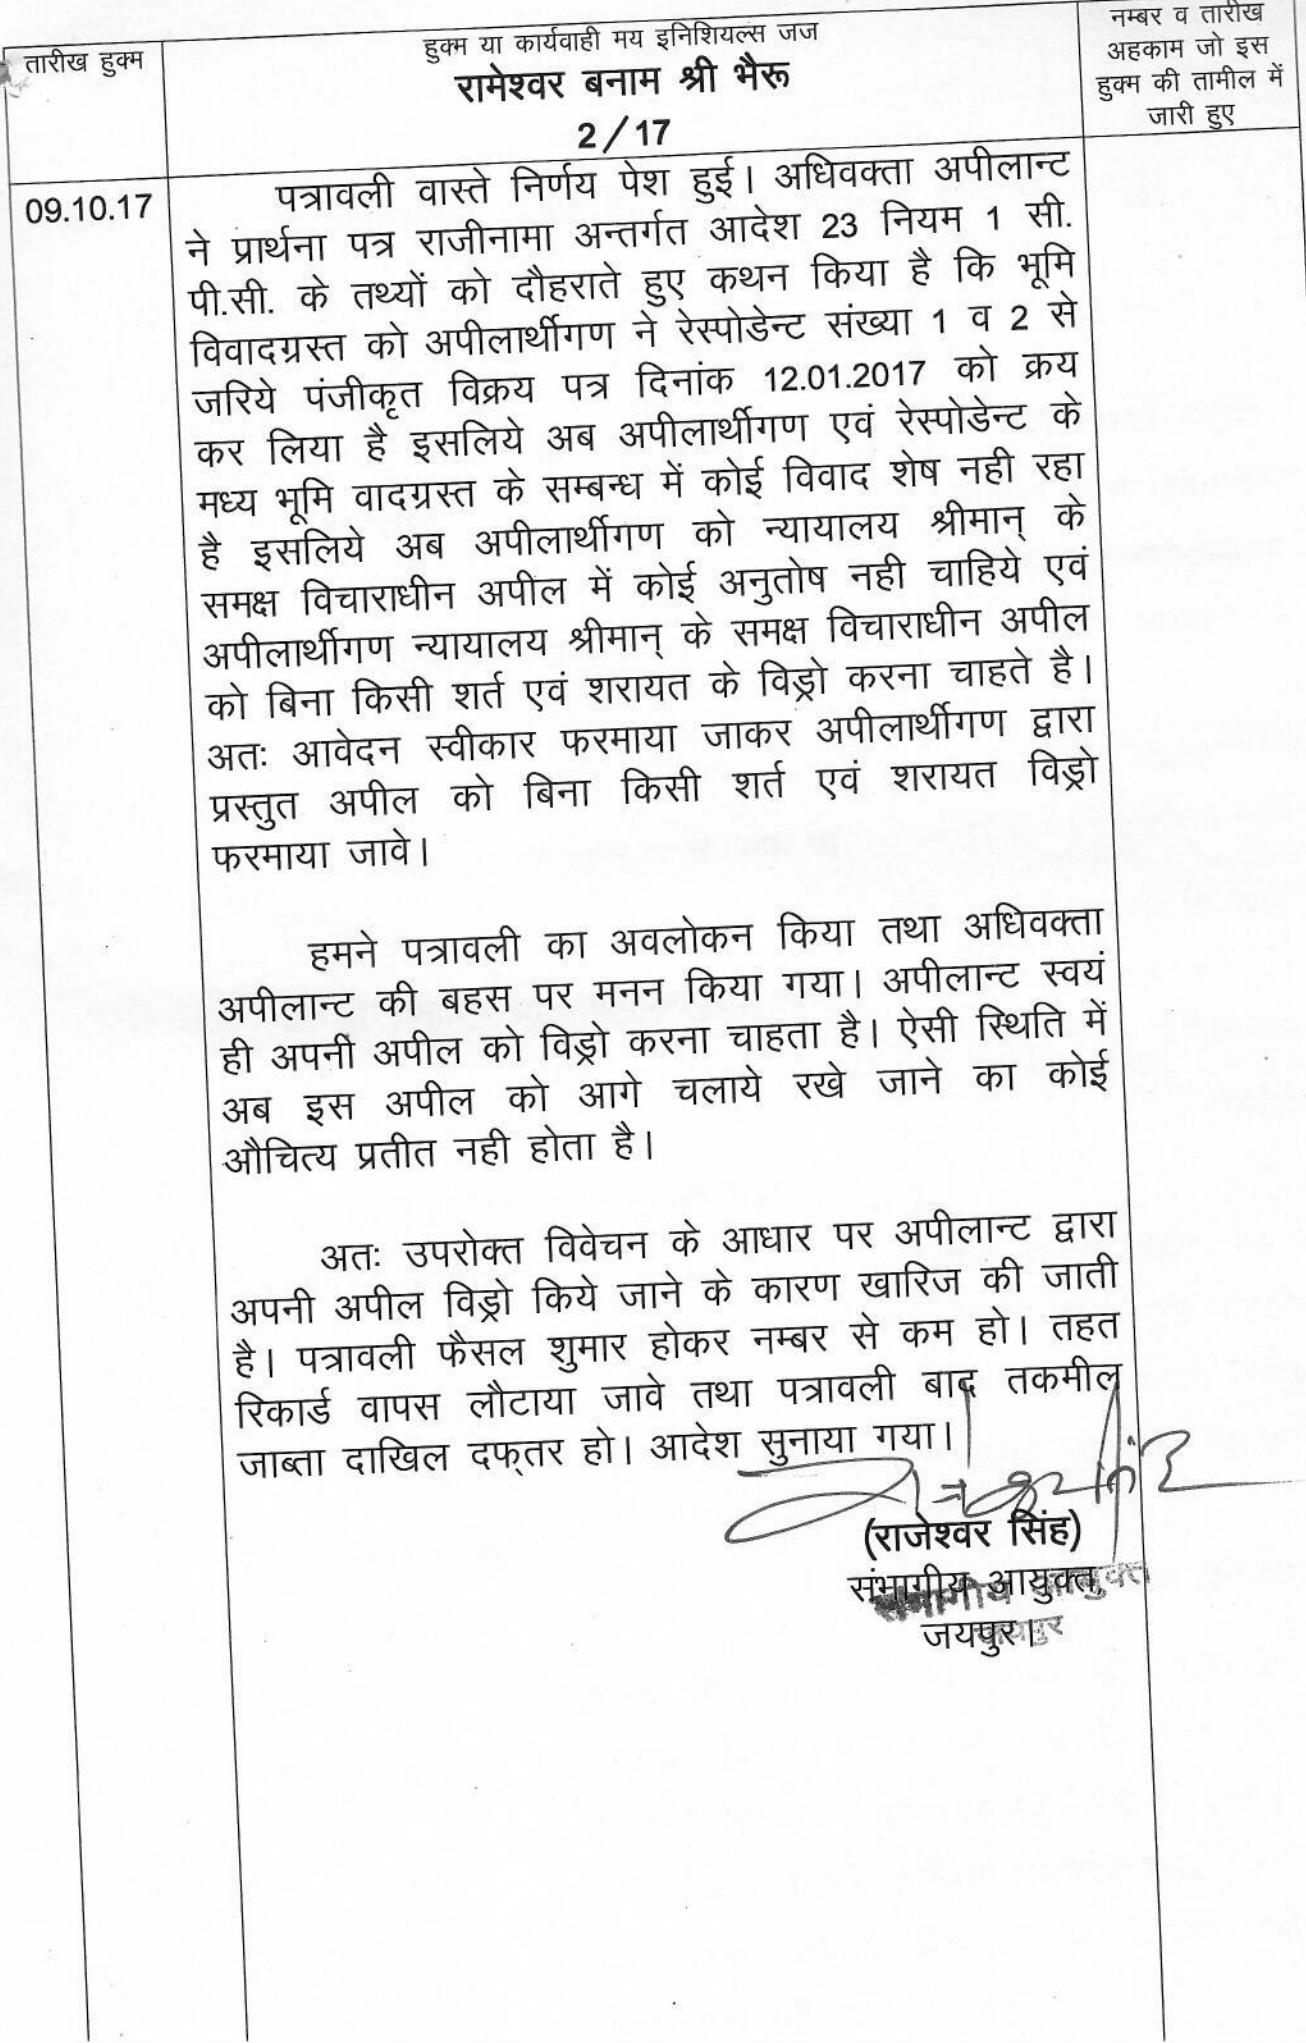 तारीख हुक्म
हुक्म या कार्यवाही मय इनिशियल्स जज
रामेश्वर बनाम श्री भैरू
2/17
नम्बर व तारीख
अहकाम जो इस
हुक्म की तामील में
जारी हुए
09.10.17
पत्रावली वास्ते निर्णय पेश हुई। अधिवक्ता अपीलान्ट
ने प्रार्थना पत्र राजीनामा अन्तर्गत आदेश 23 नियम 1 सी.
पी.सी. के तथ्यों को दौहराते हुए कथन किया है कि भूमि
विवादग्रस्त को अपीलार्थीगण ने रेस्पोडेन्ट संख्या 1 व 2 से
जरिये पंजीकृत विक्रय पत्र दिनांक 12.01.2017 को क्रय
कर लिया है इसलिये अब अपीलार्थीगण एवं रेस्पोडेन्ट के
मध्य भूमि वादग्रस्त के सम्बन्ध में कोई विवाद शेष नही रहा
है इसलिये अब अपीलार्थीगण को न्यायालय श्रीमान् के
समक्ष विचाराधीन अपील में कोई अनुतोष नही चाहिये एवं
अपीलार्थीगण न्यायालय श्रीमान् के समक्ष विचाराधीन अपील
को बिना किसी शर्त एवं शरायत के विड्रो करना चाहते है।
अतः आवेदन स्वीकार फरमाया जाकर अपीलार्थीगण द्वारा
प्रस्तुत अपील को बिना किसी शर्त एवं शरायत विड्रो
फरमाया जावे।
हमने पत्रावली का अवलोकन किया तथा अधिवक्ता
अपीलान्ट की बहस पर मनन किया गया। अपीलान्ट स्वयं
ही अपनी अपील को विड्रो करना चाहता है। ऐसी स्थिति में
अब इस अपील को आगे चलाये रखे जाने का कोई
औचित्य प्रतीत नही होता है।
अतः उपरोक्त विवेचन के आधार पर अपीलान्ट द्वारा
अपनी अपील विड्रो किये जाने के कारण खारिज की जाती
है। पत्रावली फैसल शुमार होकर नम्बर से कम हो। तहत
रिकार्ड वापस लौटाया जावे तथा पत्रावली बाद तकमील
जाब्ता दाखिल दफ्तर हो। आदेश सुनाया गया।
(राजेश्वर सिंह)
संभागीय आयुक्त,
संभागीय आयुक्त
जयपुर।
जयपुर